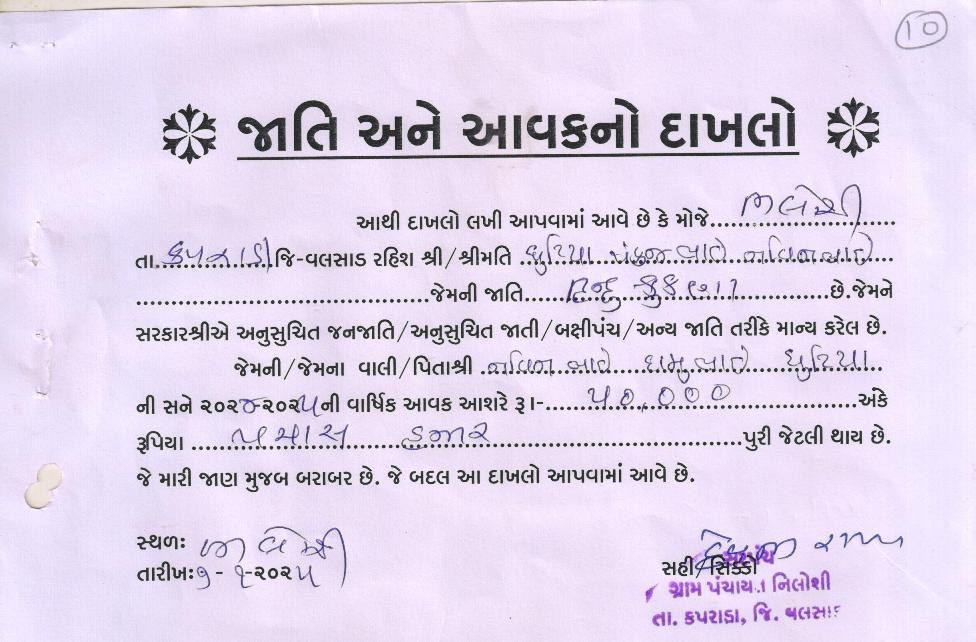 10
જાતિ અને આવકનો દાખલો
આથી દાખલો લખી આપવામાં આવે છે કે મોજે
તા. કપરાડા જિ-વલસાડ રહિશ શ્રી/શ્રીમતિ ધુરિયા પંકજભાઈ નવિનભાઈ
જેમની જાતિ હિન્દુ-કુકણા છે.જેમને
સરકારશ્રીએ અનુસુચિત જનજાતિ/અનુસુચિત જાતી/બક્ષીપંચ/અન્ય જાતિ તરીકે માન્ય કરેલ છે.
જેમની/જેમના વાલી/પિતાશ્રી નવિનભાઈ ધુરિયા
ની સને ૨૦૨૪-૨૦૨૫ની વાર્ષિક આવક આશરે રૂા- ૫૦,૦૦૦ અંકે
રૂપિયા પચાસ હજાર પુરી જેટલી થાય છે.
જે મારી જાણ મુજબ બરાબર છે. જે બદલ આ દાખલો આપવામાં આવે છે.
સ્થળઃ
તારીખઃ૧-૧-૨૦૨૫
સહી/સિક્કો
સરપંચ
ગ્રામ પંચાયત નિલોશી
તા. કપરાડા, જિ. વલસાડ